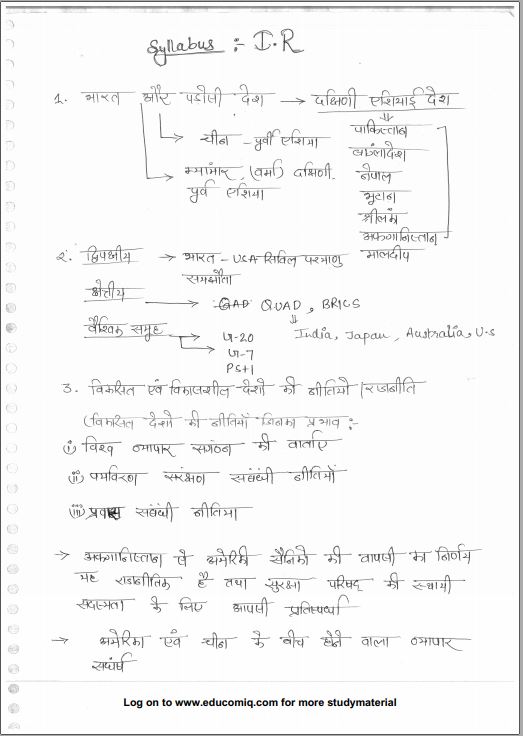 Syllabus :- I.R
1. भारत और पडोसी देश → दक्षिणी एशियाई देश
⇓
पाकिस्तान
चीन - पूर्वी एशिया
बांग्लादेश
म्यांमार (बर्मा) दक्षिणी
नेपाल
पूर्व एशिया
भूटान
श्रीलंका
अफगानिस्तान
२. द्विपक्षीय → भारत - USA सिविल परमाणु
मालदीव
समझौता
क्षेत्रीय → QUAD, BRICS
⇓
वैश्विक समूह → G-20
India, Japan, Australia, U.S
G-7
P5+1
3. विकसित एवं विकासशील देशो की नीतियाँ | राजनीति
(विकसित देशो की नीतियाँ जिनका प्रभाव :-
(i) विश्व व्यापार संगठन की वार्ताए
(ii) पर्यावरण संरक्षण संबंधी नीतियाँ
(iii) प्रवास संबंधी नीतिया
→ अफगानिस्तान से अमेरिकी सैनिको की वापसी का निर्णय
यह राजनीतिक है तथा सुरक्षा परिषद की स्थायी
सदस्यता के लिए आपसी प्रतिस्पर्धा
→ अमेरिका एवं चीन के बीच होने वाला व्यापार
संघर्ष
Log on to www.educomiq.com for more studymaterial